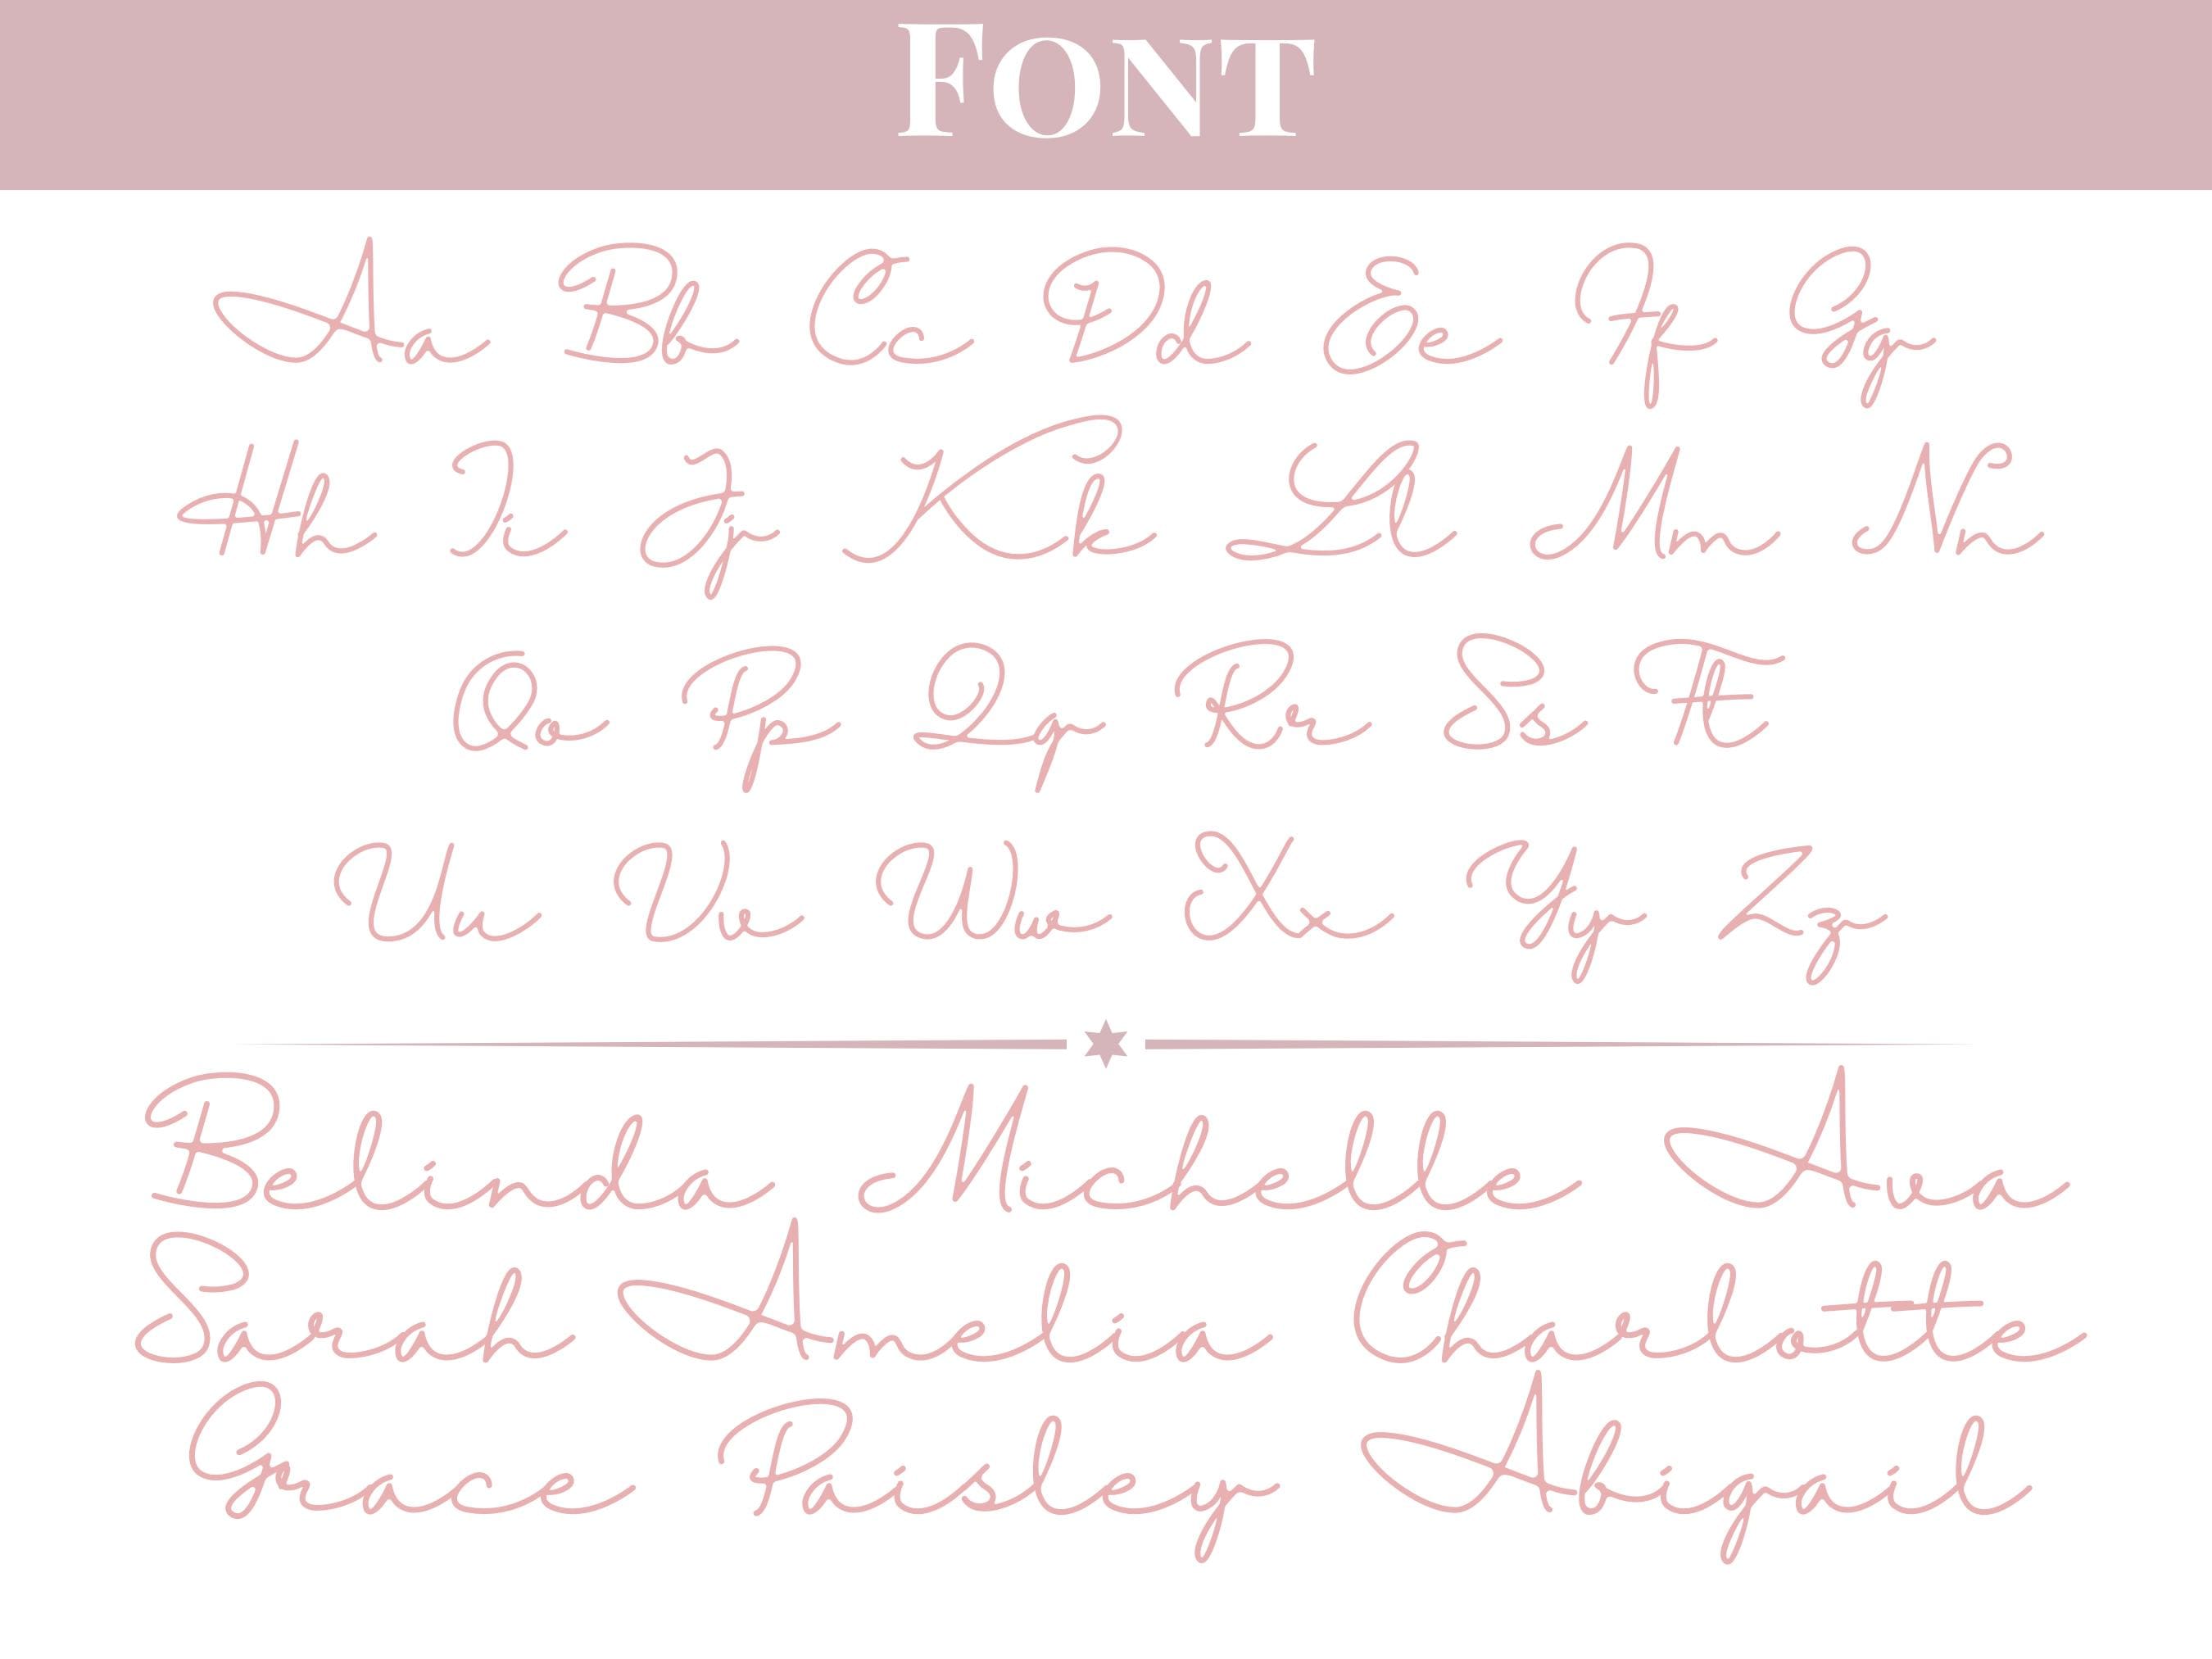 FONT
Aa Bb Cc Dd Ee Ff Gg
Hh Ii Jj Kk Ll Mm Nn
Oo Pp Qq Rr Ss Tt
Uu Vv Ww Xx Yy Zz
Belinda Michelle Ava
Sarah Amelie Charlotte
Grace Paisley Abigail